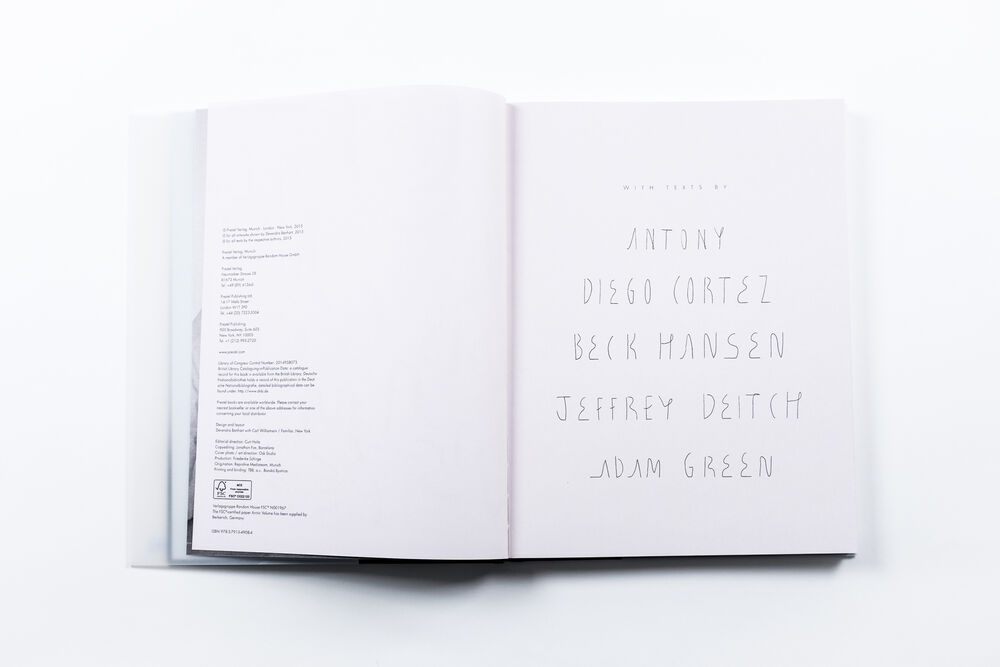 © Prestel Verlag, Munich · London · New York, 2015
© for all artworks shown by Devendra Banhart, 2015
© for all texts by the respective authors, 2015
Prestel Verlag, Munich
A member of Verlagsgruppe Random House GmbH
Prestel Verlag
Neumarkter Strasse 28
81673 Munich
Prestel Publishing Ltd.
14-17 Wells Street
London W1T 3PD
Prestel Publishing
900 Broadway, Suite 603
New York, NY 10003
www.prestel.com
Library of Congress Control Number:
British Library Cataloguing-in-Publication Data: a catalogue
record for this book is available from the British Library; Deutsche
Nationalbibliothek holds a record of this publication in the Deut
sche Nationalbibliografie; detailed bibliographical data can be
found under: http://www.dnb.de
Prestel books are available worldwide. Please contact your
nearest bookseller or one of the above addresses for information
concerning your local distributor.
Design and layout
Devendra Banhart with Carl Williamson / Familiar, New York
Editorial direction: Curt Holtz
Copyediting: Jonathan Fox, Barcelona
Cover photo / art direction: Osk Studio
Production: Friederike Schirge
Origination: Repro Mediateam, Munich
Printing and binding: TBB, a.s., Banská Bystrica
FSC
MIX
Verlagsgruppe Random House FSC® N001967
The FSC®-certified paper
Germany
WITH TEXTS BY
ANTONY
DIEGO CORTEZ
BECK HANSEN
JEFFREY DEITCH
ADAM GREEN